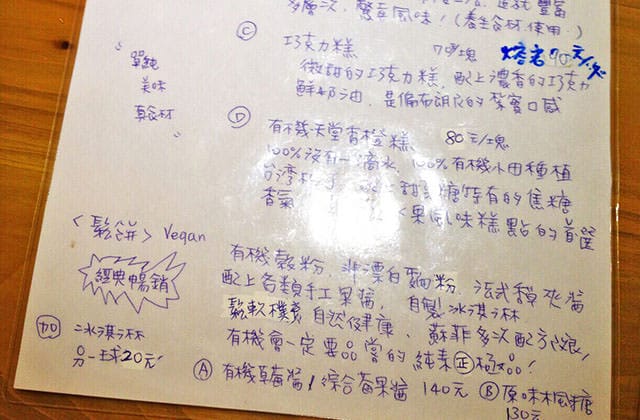 多層次，
風味！（養生食材使用）
Ⓒ 巧克力糕 70/塊 熔岩90元/塊
微甜的巧克力糕，配上濃香的巧克力
鮮奶油，是偏布朗尼的紮實口感
單純
美味
真食材
Ⓓ 有機天堂香橙糕 80元/塊
100%沒有一滴水，100%有機小田種植
台灣 甜 糖特有的焦糖
香氣 果風味糕點的首選
<鬆餅> Vegan
經典暢銷
有機穀粉，非漂白麵粉，法式 夾醬
配上各類手工果醬，自製冰淇淋
鬆軟樸實 自然健康，蘇菲多次配方 ，
有機會一定要品嘗的純素正極品！
加 冰淇淋
一球20元！
Ⓐ 有機草莓醬/綜合莓果醬 140元 Ⓑ 原味楓糖
130元